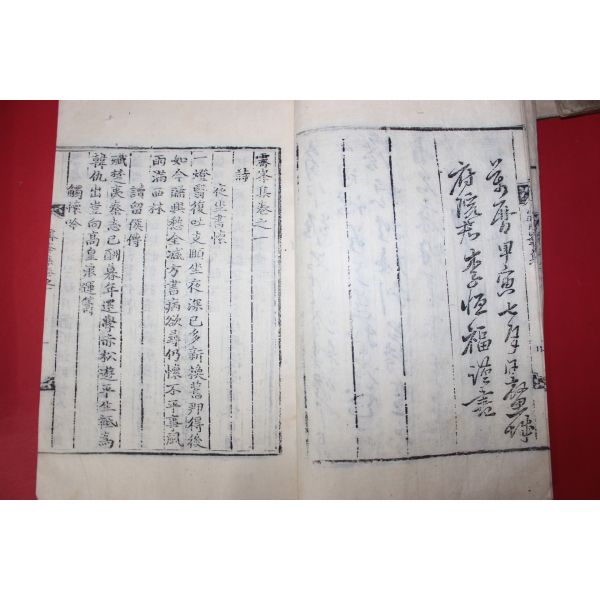 萬曆甲寅七月日鰲城
府院君李恒福謹
霽峯集卷之一
詩
夜坐書懷
一燈翳復吐支頤坐夜深已多新換舊那得後
如今睡興愁全减方書病欲尋仍懷不平事風
雨滿西林
讀留侯傳
殲楚夷秦志已酬暮年還學赤松遊平生秪爲
韓仇出豈向高皇浪運籌
觸懷吟